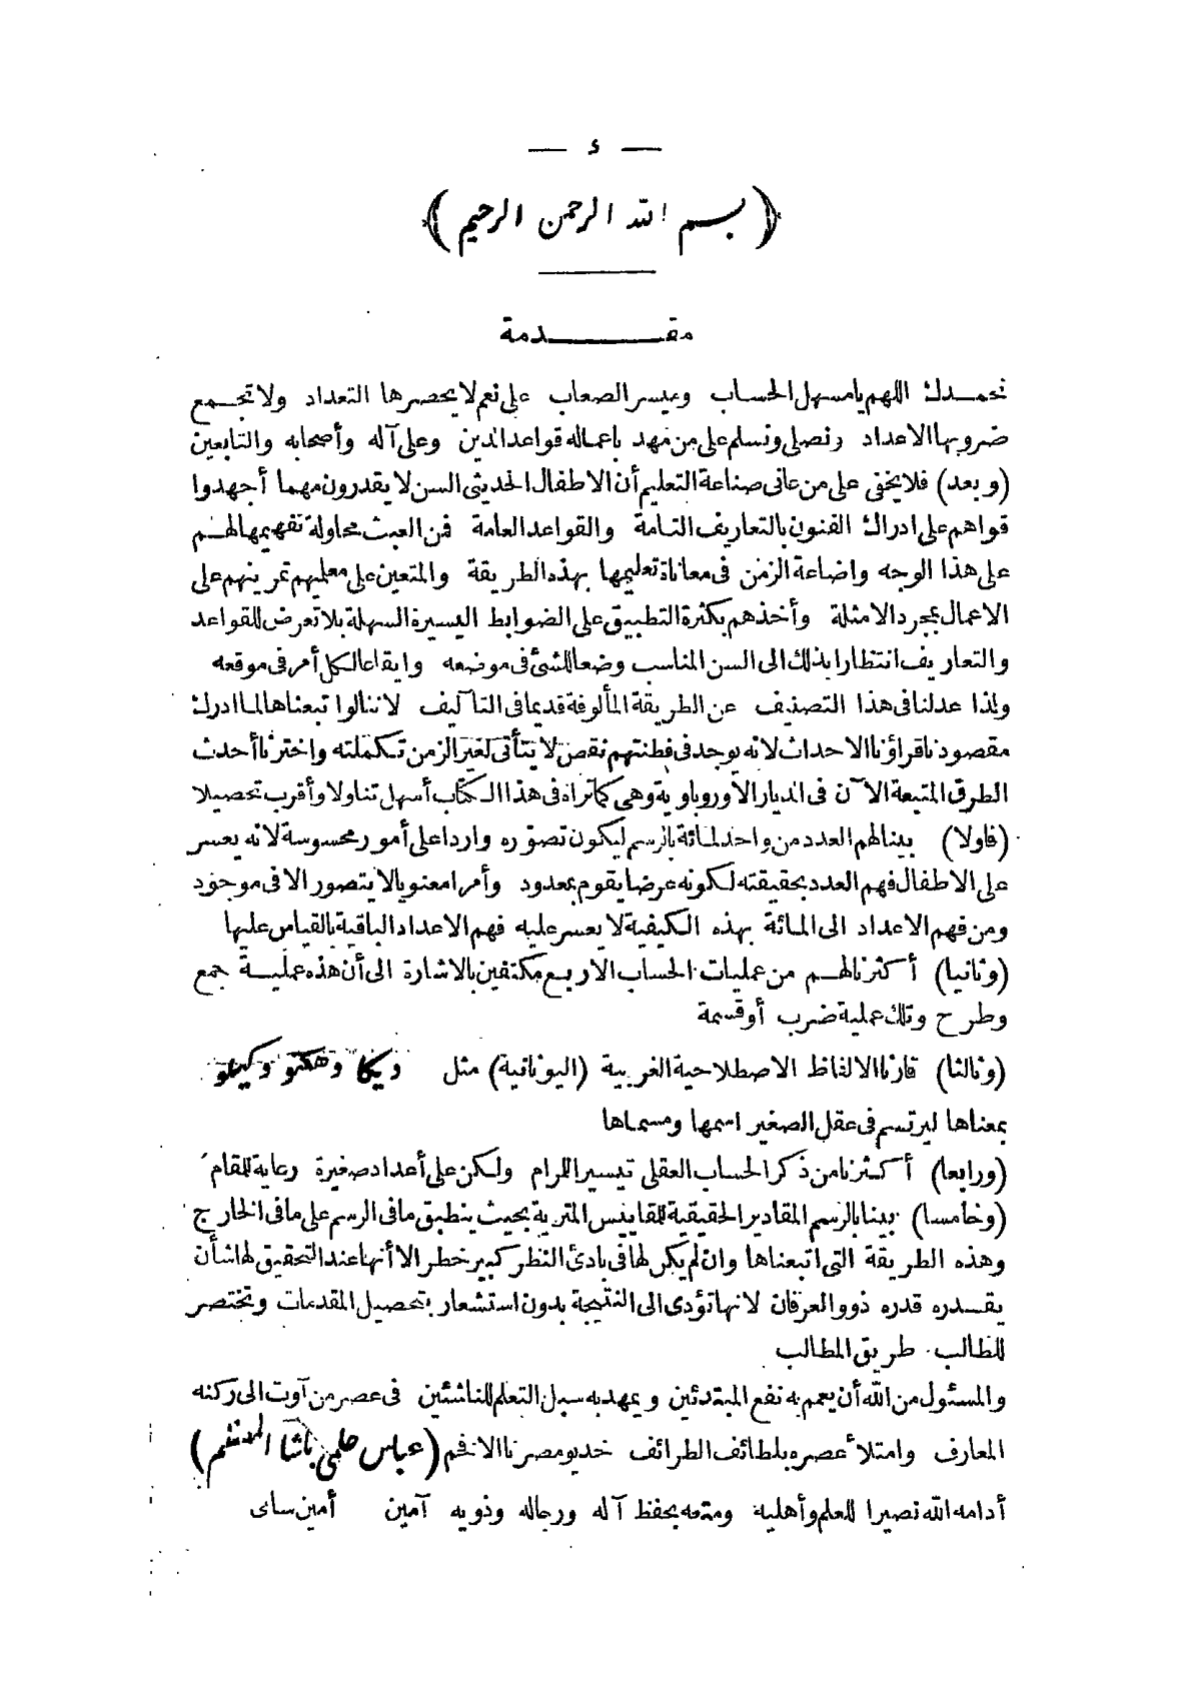 — ٤ —
﴿ بسم الله الرحمن الرحيم ﴾
مقدمة
نحمدك اللهم يا مسهل الحساب وميسر الصعاب على نعم لا يحصرها التعداد ولا تجمع
ضروبها الاعداد ونصلى ونسلم على من مهد باعماله قواعد الدين وعلى آله وأصحابه والتابعين
(وبعد) فلا يخفى على من عانى صناعة التعليم أن الاطفال الحديثى السن لا يقدرون مهما أجهدوا
قواهم على ادراك الفنون بالتعاريف التامة والقواعد العامة فمن العبث محاولة تفهيمها لهم
على هذا الوجه واضاعة الزمن فى معاناة تعليمها بهذه الطريقة والمتعين على معليهم تمرينهم على
الاعمال بمجرد الامثلة وأخذهم بكثرة التطبيق على الضوابط اليسيرة السهلة بلا تعرض للقواعد
والتعاريف انتظارا بذلك الى السن المناسب وضعا للشئ فى موضعه وايقاعا لكل أمر فى موقعه
ولذا عدلنا فى هذا التصنيف عن الطريقة المألوفة قديما فى التآليف لاننا لو اتبعناها لما ادرك
مقصودنا قراؤنا الاحداث لانه يوجد فى فطنتهم نقص لا يتأتى لغير الزمن تكملته واخترنا أحدث
الطرق المتبعة الآن فى الديار الأوروباوية وهى كما تراه فى هذا الكتاب أسهل تناولا وأقرب تحصيلا
(فاولا) بينا لهم العدد من واحد لمائة بالرسم ليكون تصوّره واردا على أمور محسوسة لانه يعسر
على الاطفال فهم العدد بحقيقته لكونه عرضا يقوم بمعدود وأمرا معنويا لا يتصور الا فى موجود
ومن فهم الاعداد الى المائة بهذه الكيفية لا يعسر عليه فهم الاعداد الباقية بالقياس عليها
(وثانيا) أكثرنا لهم من عمليات الحساب الاربع مكتفين بالاشارة الى أن هذه عملية جمع
وطرح وتلك عملية ضرب أو قسمة
(وثالثا) قارنا الالفاظ الاصطلاحية الغربية (اليونانية) مثل ديكا وهكتو وكيلو
بمعناها ليرتسم فى عقل الصغير اسمها ومسماها
(ورابعا) أكثرنا من ذكر الحساب العقلى تيسيرا للرام ولكن على أعداد صغيرة رعاية للقام
(وخامسا) بينا بالرسم المقادير الحقيقية للقاييس المترية بحيث ينطبق ما فى الرسم على ما فى الخارج
وهذه الطريقة التى اتبعناها وان لم يكن لها فى بادئ النظر كبير خطر الا أنها عند التحقيق لها شأن
يقدره قدره ذوو العرفان لانها تؤدى الى النتيجة بدون استشعار بتحصيل المقدمات وتختصر
للطالب طريق المطالب
والمسئول من الله أن يعمم به نفع المبتدئين ويمهد به سبل التعلم للناشئين فى عصر من آوت الى ركنه
المعارف وامتلأ عصره بلطائف الطرائف خديو مصرنا الافخم (عباس حلمى باشا المعظم)
أدامه الله نصيرا للعلم وأهليه ومتعه بحفظ آله ورجاله وذويه آمين أمين سامى